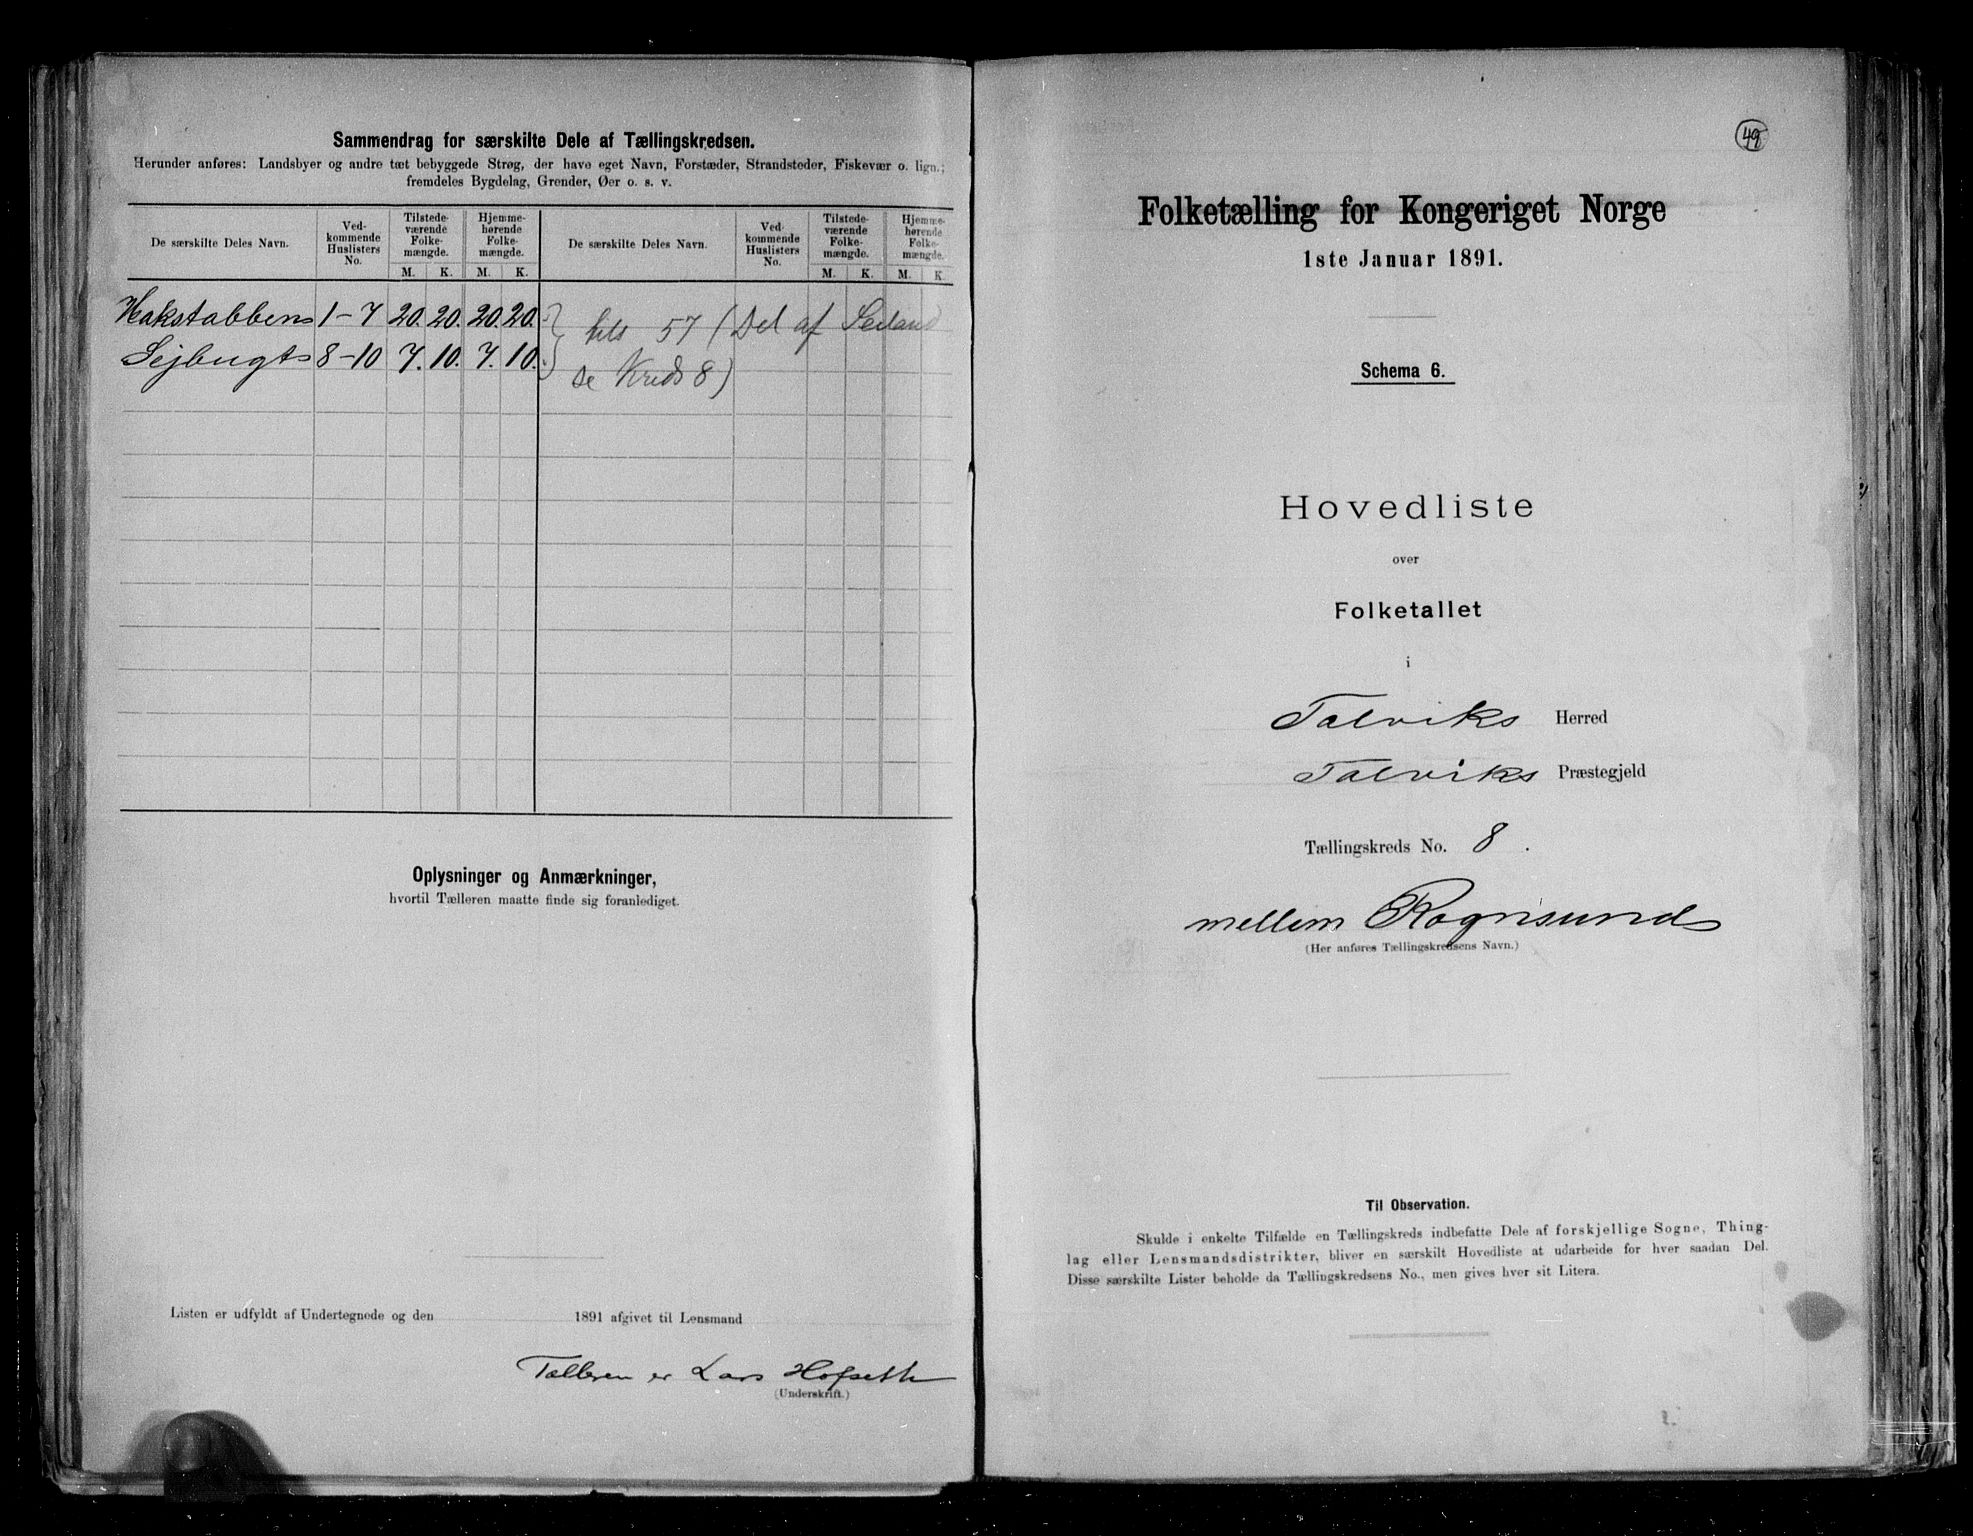 Sammendrag for særskilte Dele af Tællingskredsen.
Herunder anføres: Landsbyer og andre tæt bebyggede Strøg, der have eget Navn, Forstæder, Strandsteder, Fiskevær o. lign.;
fremdeles Bygdelag, Grender, Øer o. s. v.
De særskilte Deles Navn.
Ved-
kommende
Huslisters
No.
Tilstede-
værende
Folke-
mængde.
Hjemme-
hørende
Folke-
mængde.
M. K. M. K.
De særskilte Deles Navn.
Ved-
kommende
Huslisters
No.
Tilstede-
værende
Folke-
mængde.
Hjemme-
hørende
Folke-
mængde.
M. K. M. K.
Hakstabben 1-7 20. 20. 20. 20.
Sejbugt 8-10 7. 10. 7. 10.
tils 57 (Del af Seiland
se Kreds 8)
Oplysninger og Anmærkninger,
hvortil Tælleren maatte finde sig foranlediget.
Listen er udfyldt af Undertegnede og den 1891 afgivet til Lensmand
Tælleren er Lars Hofseth
(Underskrift.)
49
Folketælling for Kongeriget Norge
1ste Januar 1891.
Schema 6.
Hovedliste
over
Folketallet
i
Talviks Herred
Talviks Præstegjeld
Tællingskreds No. 8.
mellem Rognsund
(Her anføres Tællingskredsens Navn.)
Til Observation.
Skulde i enkelte Tilfælde en Tællingskreds indbefatte Dele af forskjellige Sogne, Thing-
lag eller Lensmandsdistrikter, bliver en særskilt Hovedliste at udarbeide for hver saadan Del.
Disse særskilte Lister beholde da Tællingskredsens No., men gives hver sit Litera.